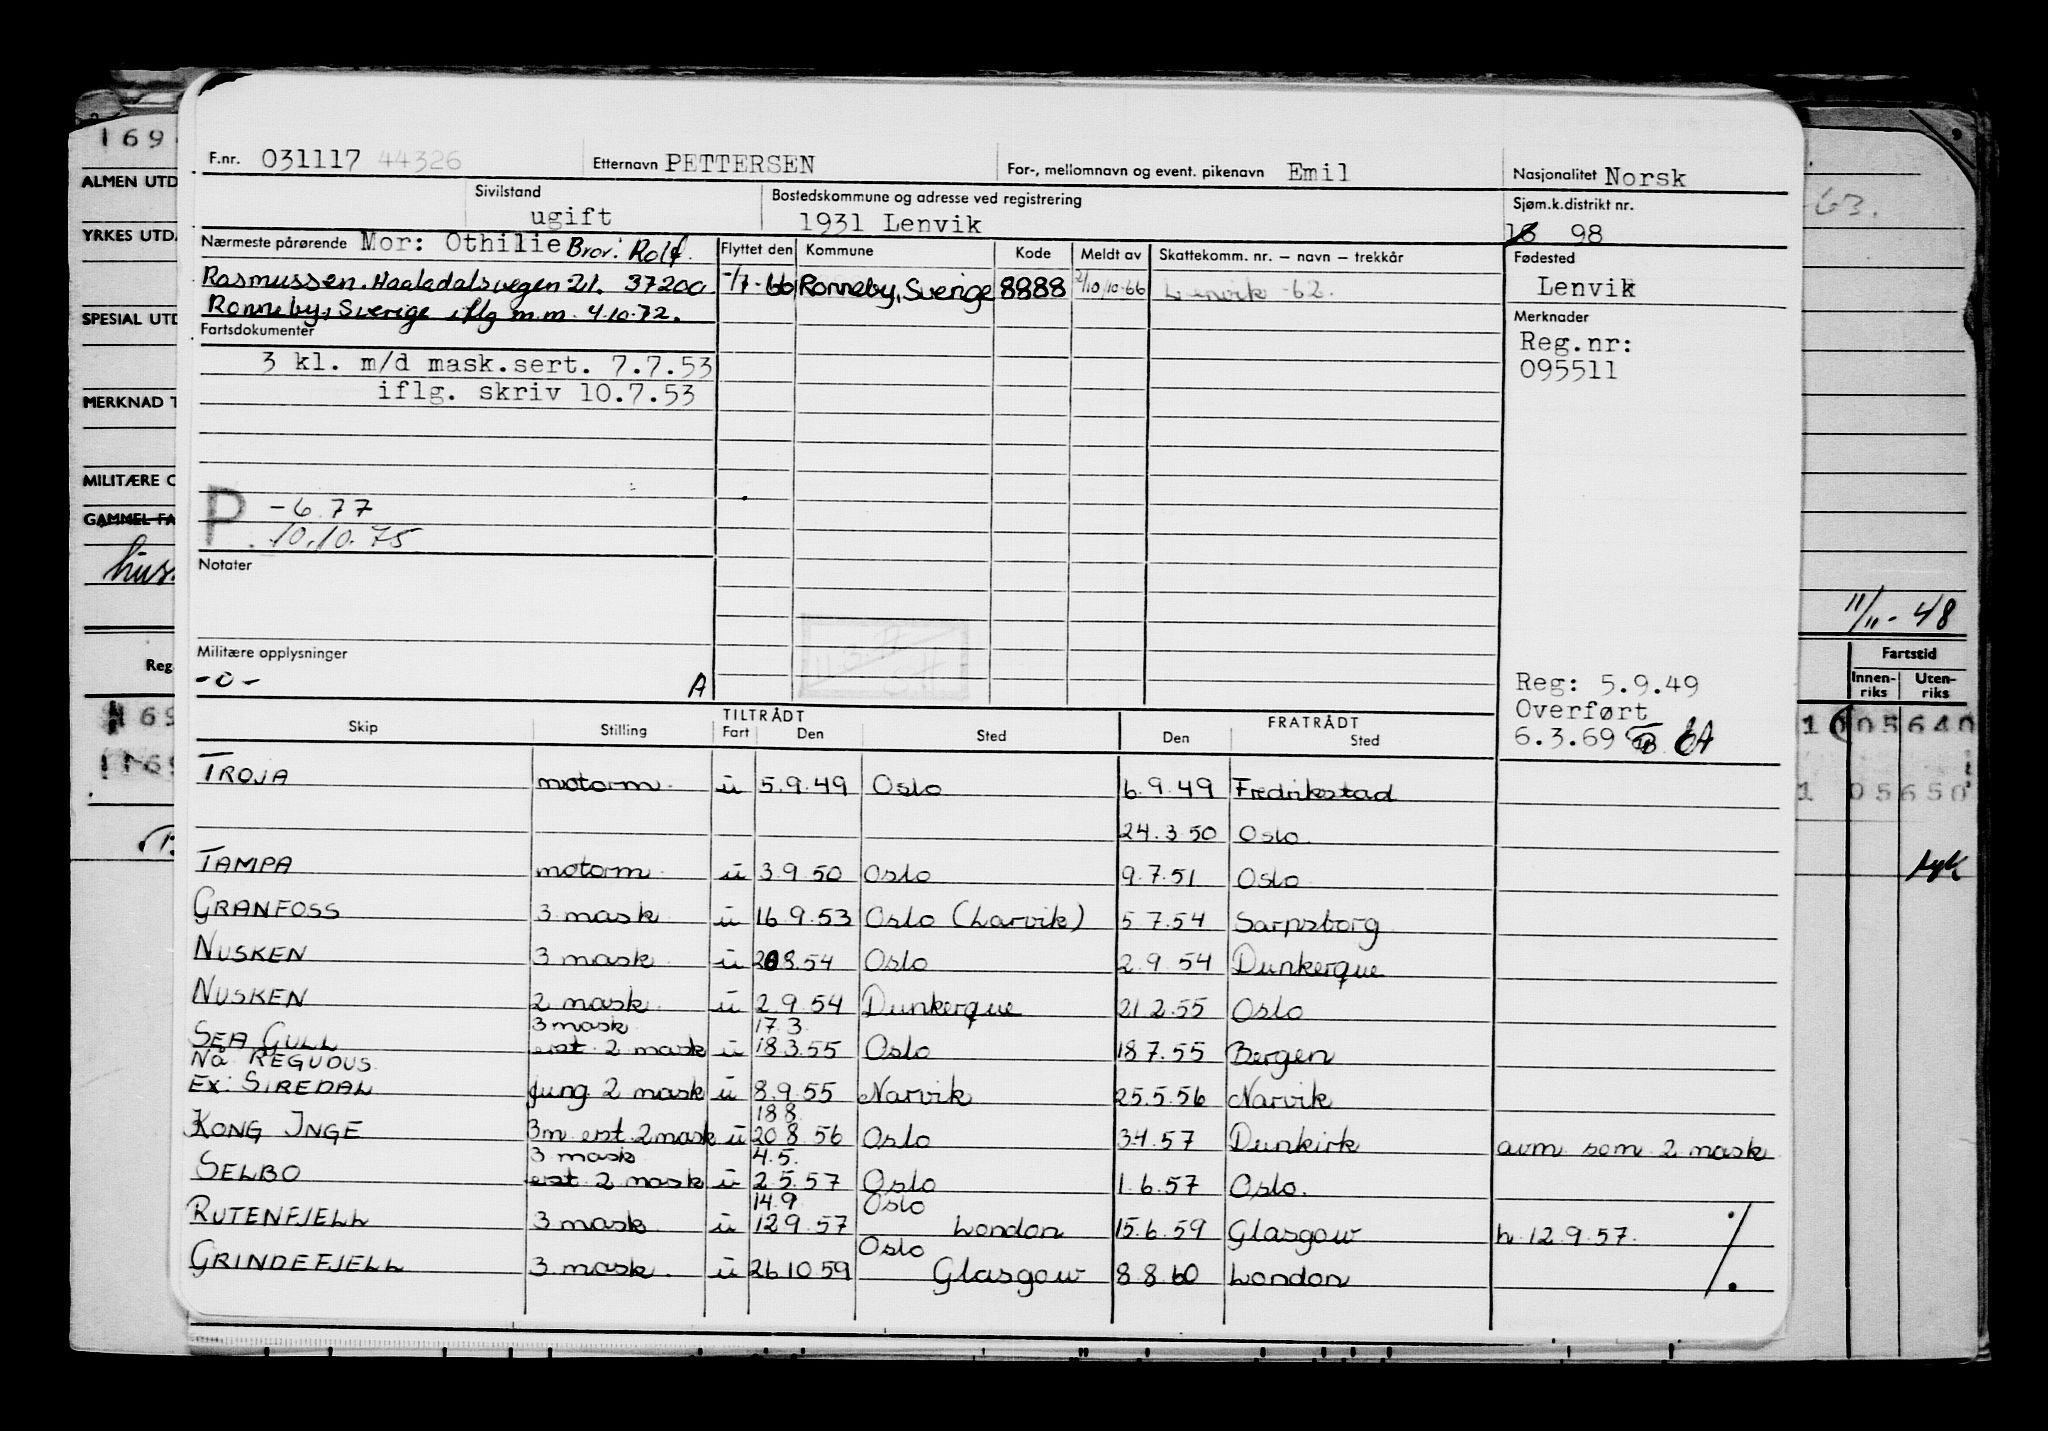 F.nr. 031117 44326 Etternavn PETTERSEN For-, mellomnavn og event. pikenavn Emil Nasjonalitet Norsk
Sivilstand ugift Bostedskommune og adresse ved registrering 1931 Lenvik Sjøm.k.distrikt nr. 98
Nærmeste pårørende Mor: Othilie Bror: Rolf Flyttet den Kommune Kode Meldt av Skattekomm. nr. – navn – trekkår Fødested Lenvik
Rasmussen. Haaladalsvegen 21. 37200 -/7-66 Ronneby, Sverige 8888 Lenvik -62.
Ronneby, Sverige iflg m.m. 4.10.72.
Fartsdokumenter
3 kl. m/d mask.sert. 7.7.53
iflg. skriv 10.7.53
Merknader
Reg.nr:
095511
P -6.77
10.10.75
Notater
Militære opplysninger
-o- A
Reg: 5.9.49
Overført
6.3.69
Skip Stilling TILTRÅDT Fart Den Sted FRATRÅDT Den Sted
TROJA motorm. ü 5.9.49 Oslo 6.9.49 Fredrikstad
24.3.50 Oslo
TAMPA motorm ü 3.9.50 Oslo 9.7.51 Oslo
GRANFOSS 3 mask ü 16.9.53 Oslo (Larvik) 5.7.54 Sarpsborg
NUSKEN 3 mask ü 208.54 Oslo 2.9.54 Dunkerque
NUSKEN 2 mask ü 2.9.54 Dunkerque 21.2.55 Oslo
3 mask 17.3.
SEA GULL erst. 2 mask ü 18.3.55 Oslo 18.7.55 Bergen
Nå REGUDUS
EX: SIREDAL fung. 2 mask ü 8.9.55 Narvik 25.5.56 Narvik
188.
KONG INGE 3m erst. 2 mask ü 20.8.56 Oslo 3.4.57 Dunkirk avm som 2 mask
3 mask 4.5.
SELBO erst 2 mask ü 2.5.57 Oslo 1.6.57 Oslo.
14.9. Oslo
RUTENFJELL 3 mask ü 129.57 London 15.6.59 Glasgow h 12.9.57.
Oslo
GRINDEFJELL 3 mask. ü 26.10.59 Glasgow 8.8.60 London
169
ALMEN UTD
YRKES UTD
SPESIAL UTD
MERKNAD T
MILITÆRE O
GAMMEL FA
Reg.
63.
11/11-48
Fartstid
Innen-riks Uten-riks
05640
1 05650